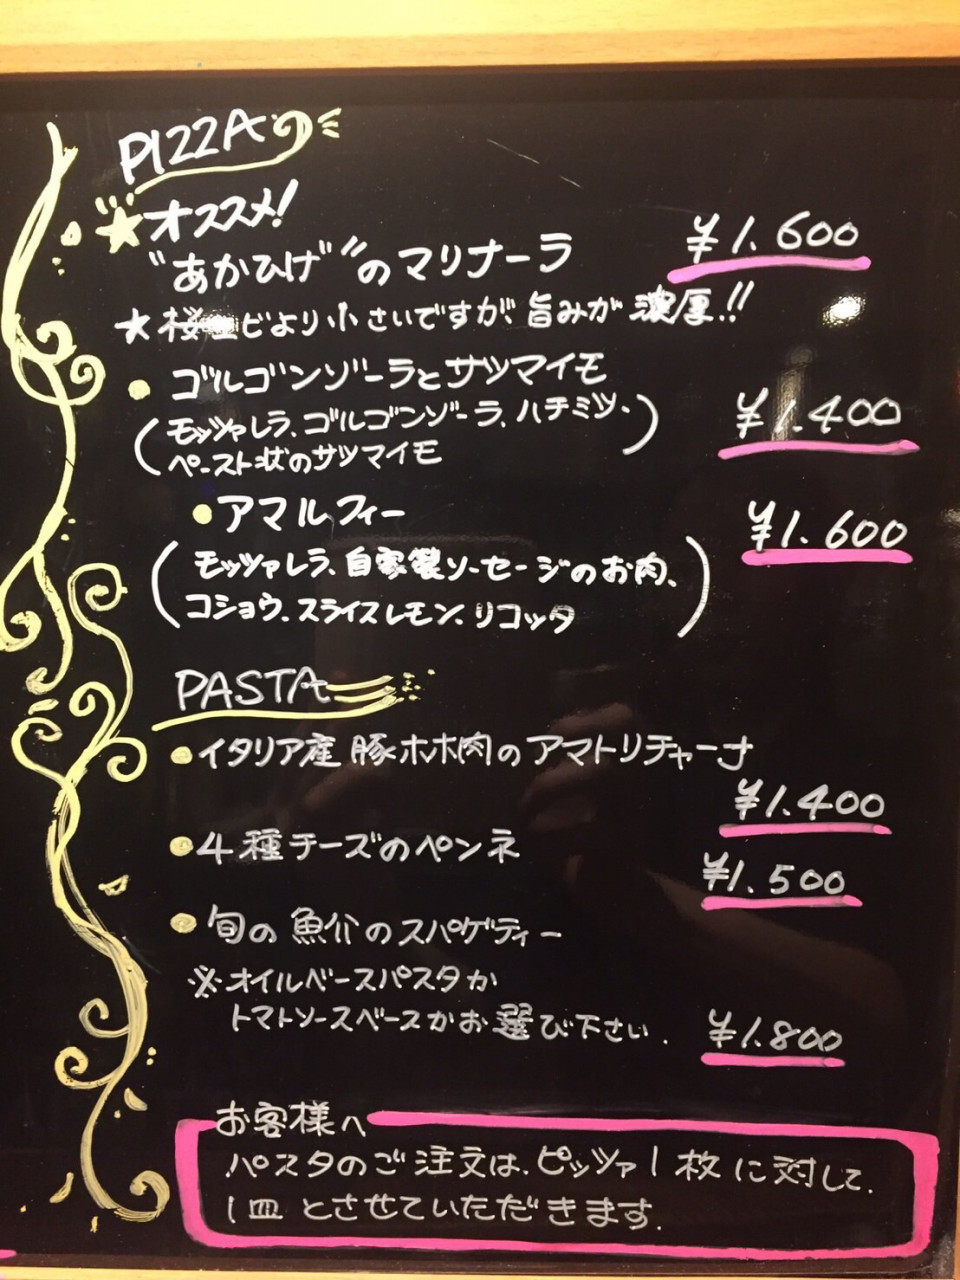 PIZZA
★オススメ!
"あかひげ"のマリナーラ
¥1.600
★桜エビより小さいですが、旨みが濃厚!!
・ゴルゴンゾーラとサツマイモ
(モッツァレラ、ゴルゴンゾーラ、ハチミツ、
ペースト状のサツマイモ)
¥1.400
・アマルフィー
¥1.600
(モッツァレラ、自家製ソーセージのお肉、
コショウ、スライスレモン、リコッタ)
PASTA
・イタリア産豚ホホ肉のアマトリチャーナ
¥1.400
・4種チーズのペンネ
¥1.500
・旬の魚介のスパゲティー
※オイルベースパスタか
トマトソースベースかお選び下さい.
¥1.800
お客様へ
パスタのご注文は、ピッツァ1枚に対して、
1皿とさせていただきます.